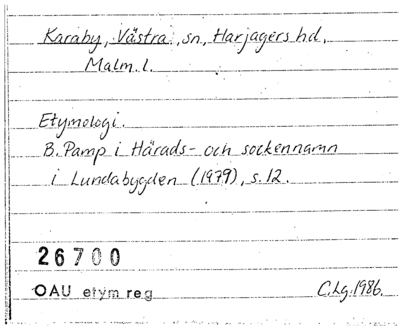 Karaby, Västra, sn, Harjagers hd,
Malm. l.
Etymologi.
B. Pamp i Härads- och sockennamn
i Lundabygden (1979), s. 12.
26700
OAU etym reg
C. Lg. 1986.